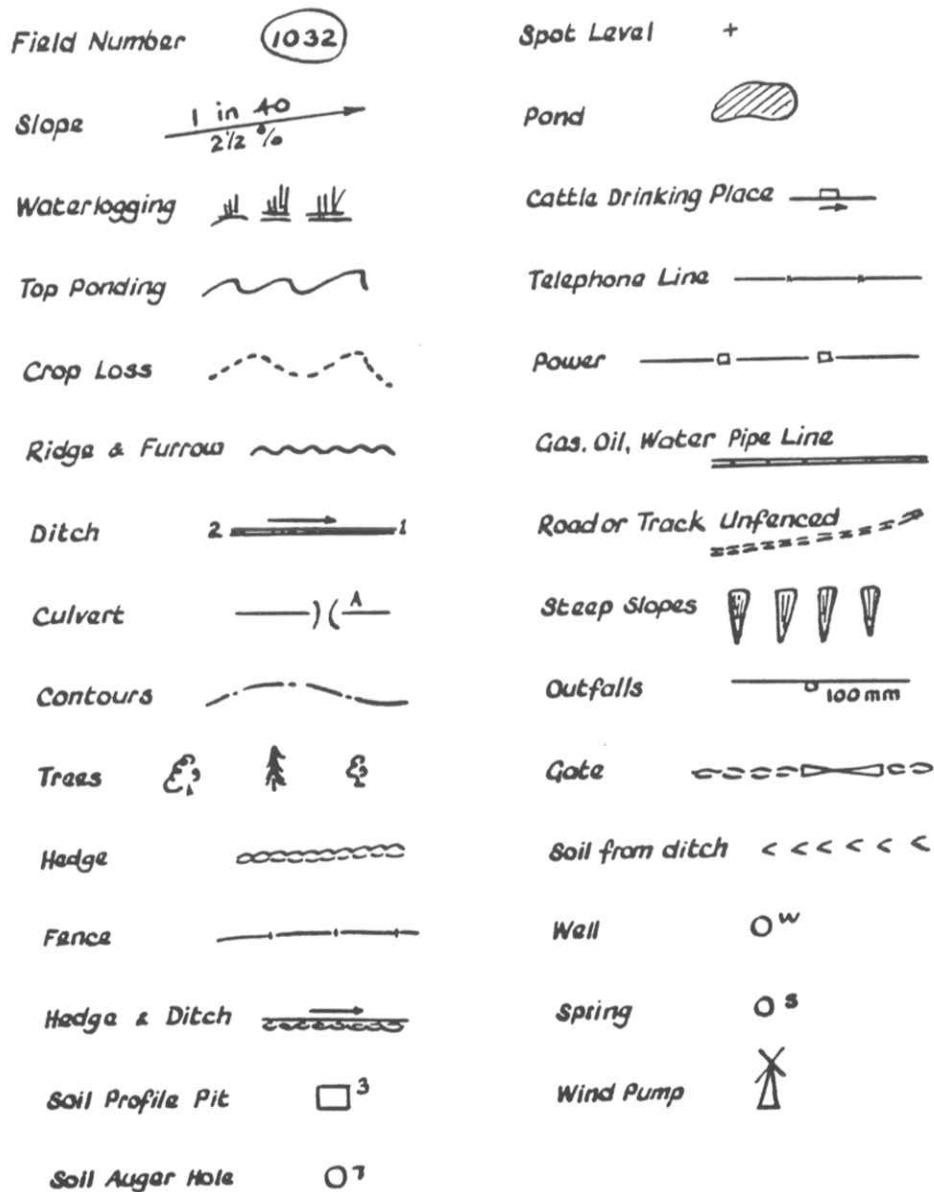 Field Number 1032
Slope 1 in 40
2½ %
Waterlogging
Top Ponding
Crop Loss
Ridge & Furrow
Ditch 2 1
Culvert A
Contours
Trees
Hedge
Fence
Hedge & Ditch
Soil Profile Pit 3
Soil Auger Hole 7
Spot Level +
Pond
Cattle Drinking Place
Telephone Line
Power
Gas, Oil, Water Pipe Line
Road or Track Unfenced
Steep Slopes
Outfalls 100mm
Gate
Soil from ditch
Well W
Spring S
Wind Pump